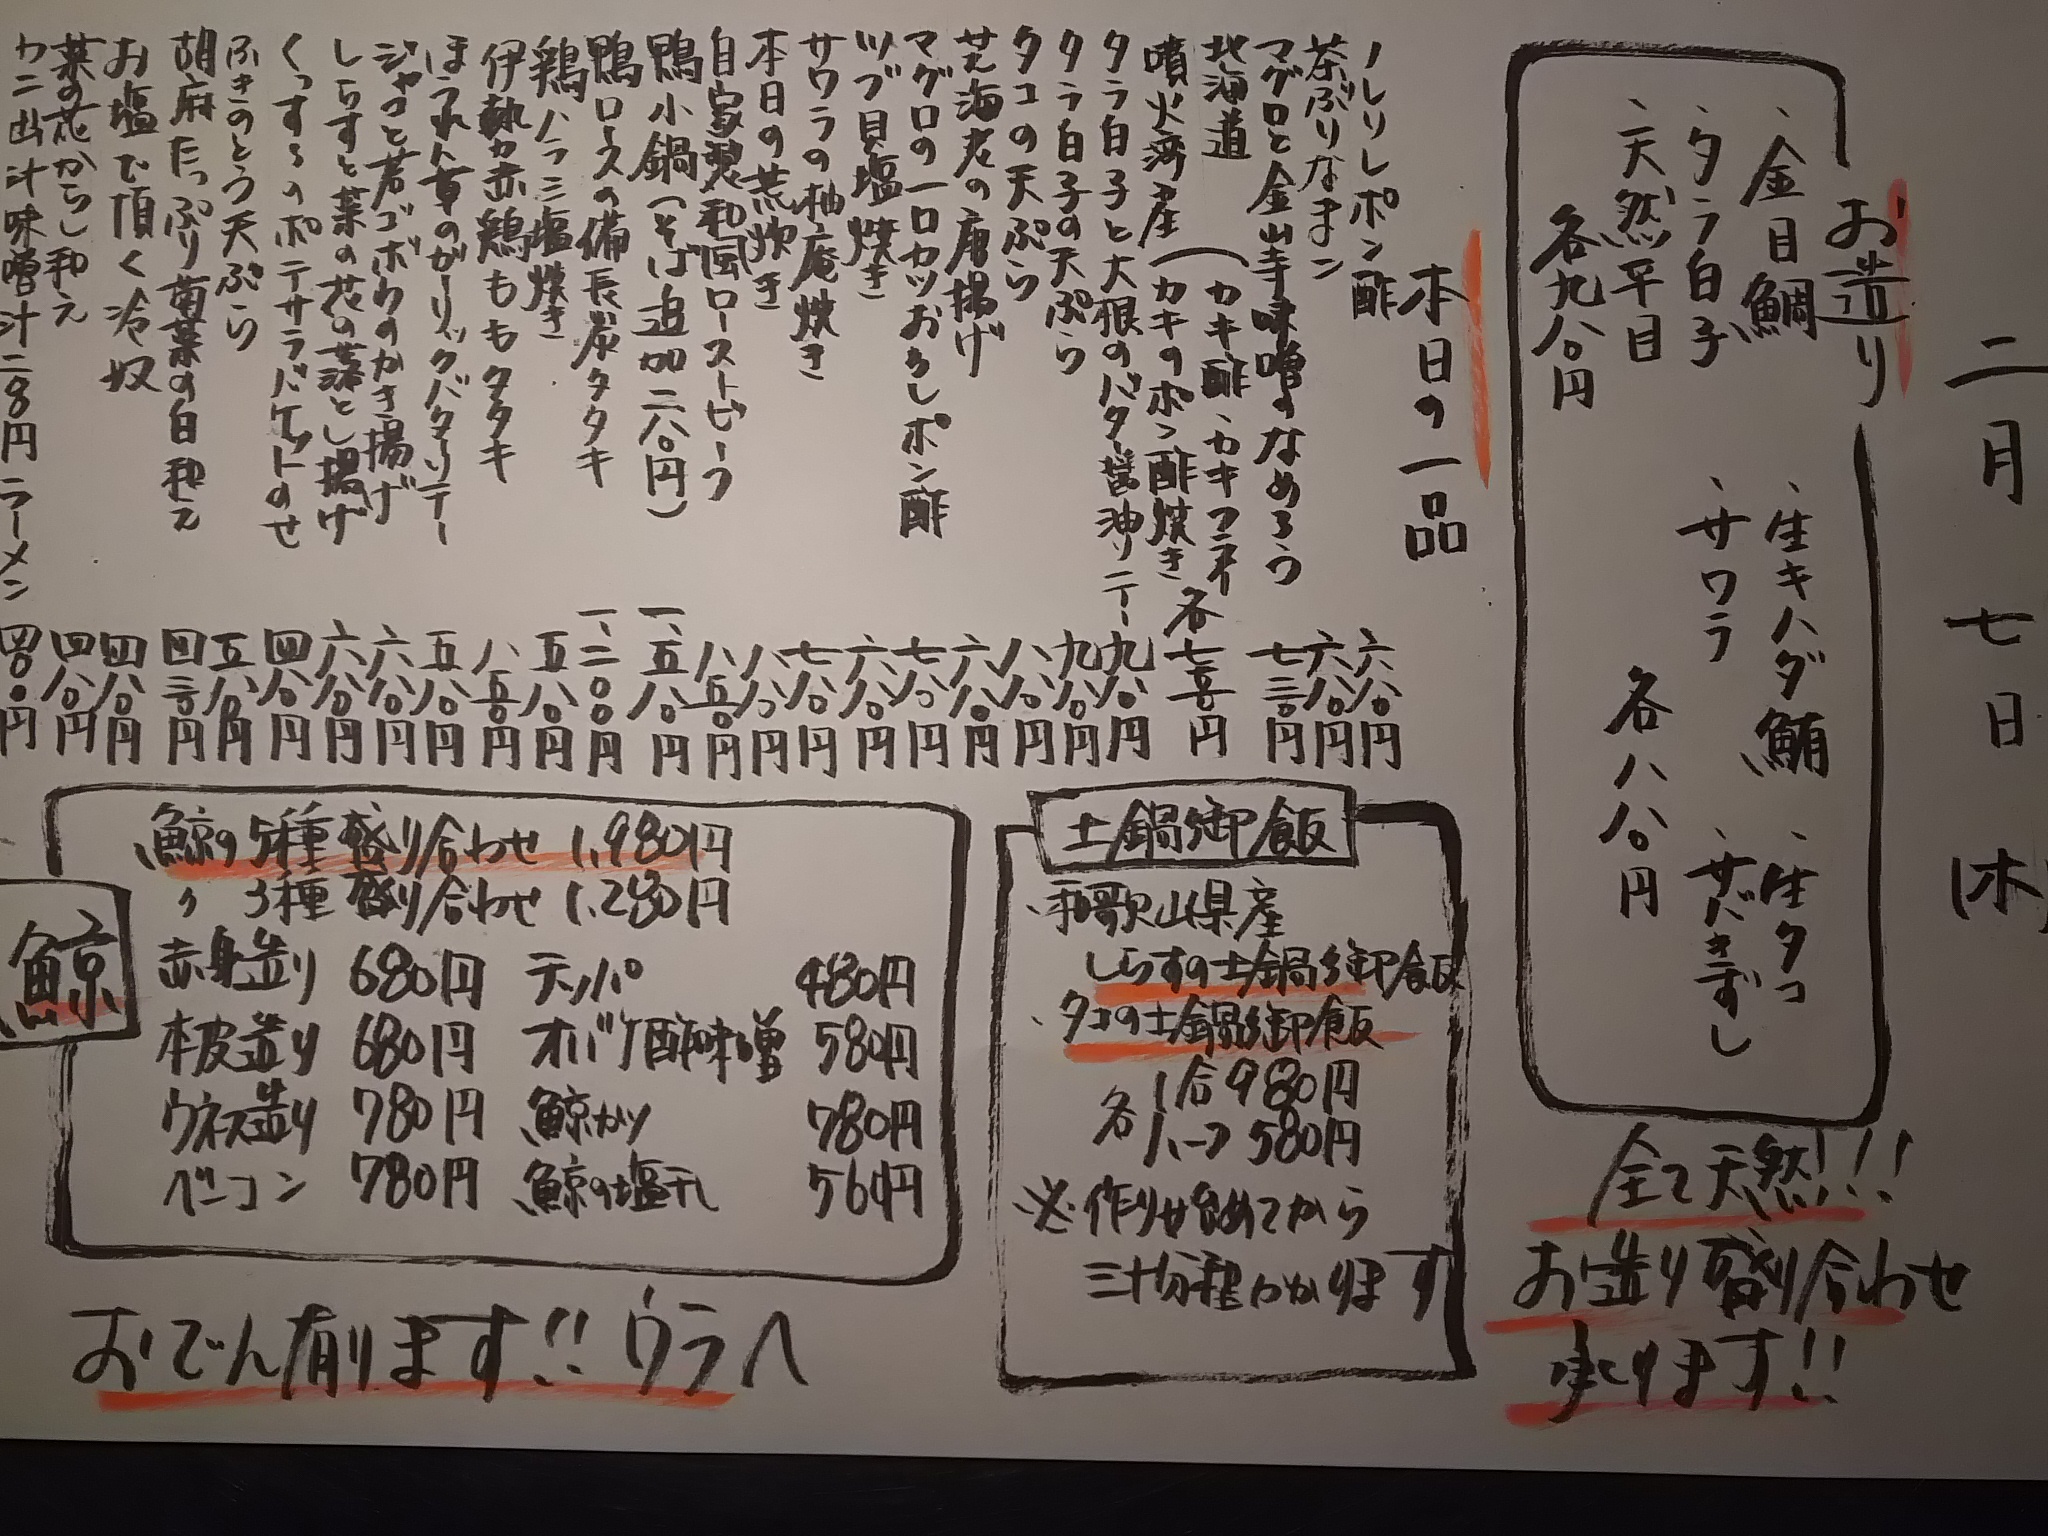 二月 七日 (木)
お造り
、金目鯛
、タラ白子
、天然平目
各九八〇円
、生キハダ鮪
、サワラ
、生タコ
、サバきずし
各八八〇円
全て天然!!!
お造り盛り合わせ
承ります!!
本日の一品
ノレソレポン酢 六八〇円
茶ぶりなまこ 六八〇円
マグロと金山寺味噌のなめろう 七三〇円
北海道
噴火湾産
(カキ酢、カキフライ
(カキのポン酢焼き 各七三〇円
タラ白子と大根のバター醤油ソテー 九八〇円
タラ白子の天ぷら 九八〇円
タコの天ぷら 八八〇円
芝海老の唐揚げ 六八〇円
マグロの一口カツおろしポン酢 七八〇円
ツブ貝塩焼き 六八〇円
サワラの柚庵焼き 七八〇円
本日の荒炊き 八八〇円
自家製和風ローストビーフ 八五〇円
鴨小鍋(そば追加二八〇円) 一、五八〇円
鴨ロースの備長炭タタキ 一、二〇〇円
鶏ハラミ塩焼き 五八〇円
伊勢赤鶏ももタタキ 八五〇円
ほうれん草のガーリックバターソテー 五八〇円
ジャコと若ゴボウのかき揚げ 六八〇円
しらすと菜の花の落とし揚げ 六八〇円
くつするのポテサラバケットのせ 四八〇円
ふきのとう天ぷら 五八〇円
胡麻たっぷり菊菜の白和え 四三〇円
お塩で頂く冷奴 四八〇円
菜の花からし和え 四八〇円
カニ出汁味噌汁二八〇円 ラーメン 四八〇円
土鍋御飯
、和歌山県産
しらすの土鍋御飯
、タコの土鍋御飯
各 1合980円
ハーフ580円
※作り始めてから
三十分程かかります
鯨
、鯨の5種盛り合わせ 1,980円
〃 3種盛り合わせ 1,280円
赤身造り 680円 テッパ 480円
本皮造り 680円 オバケ酢味噌 580円
ウネス造り 780円 鯨カツ 780円
ベーコン 780円 鯨の塩干し 560円
おでん有ります!!ウラへ